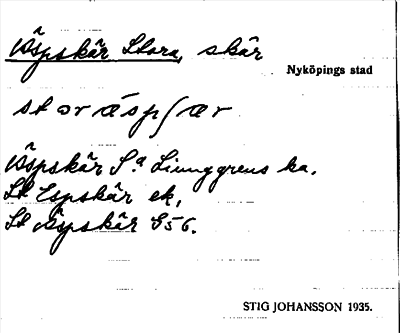 Äspskär Stora, skär
Nyköpings stad
st or æ´spʃær
Äspskär S:a Liunggrens ka.
St Espskär ek,
St Äspskär G56.
STIG JOHANSSON 1935.